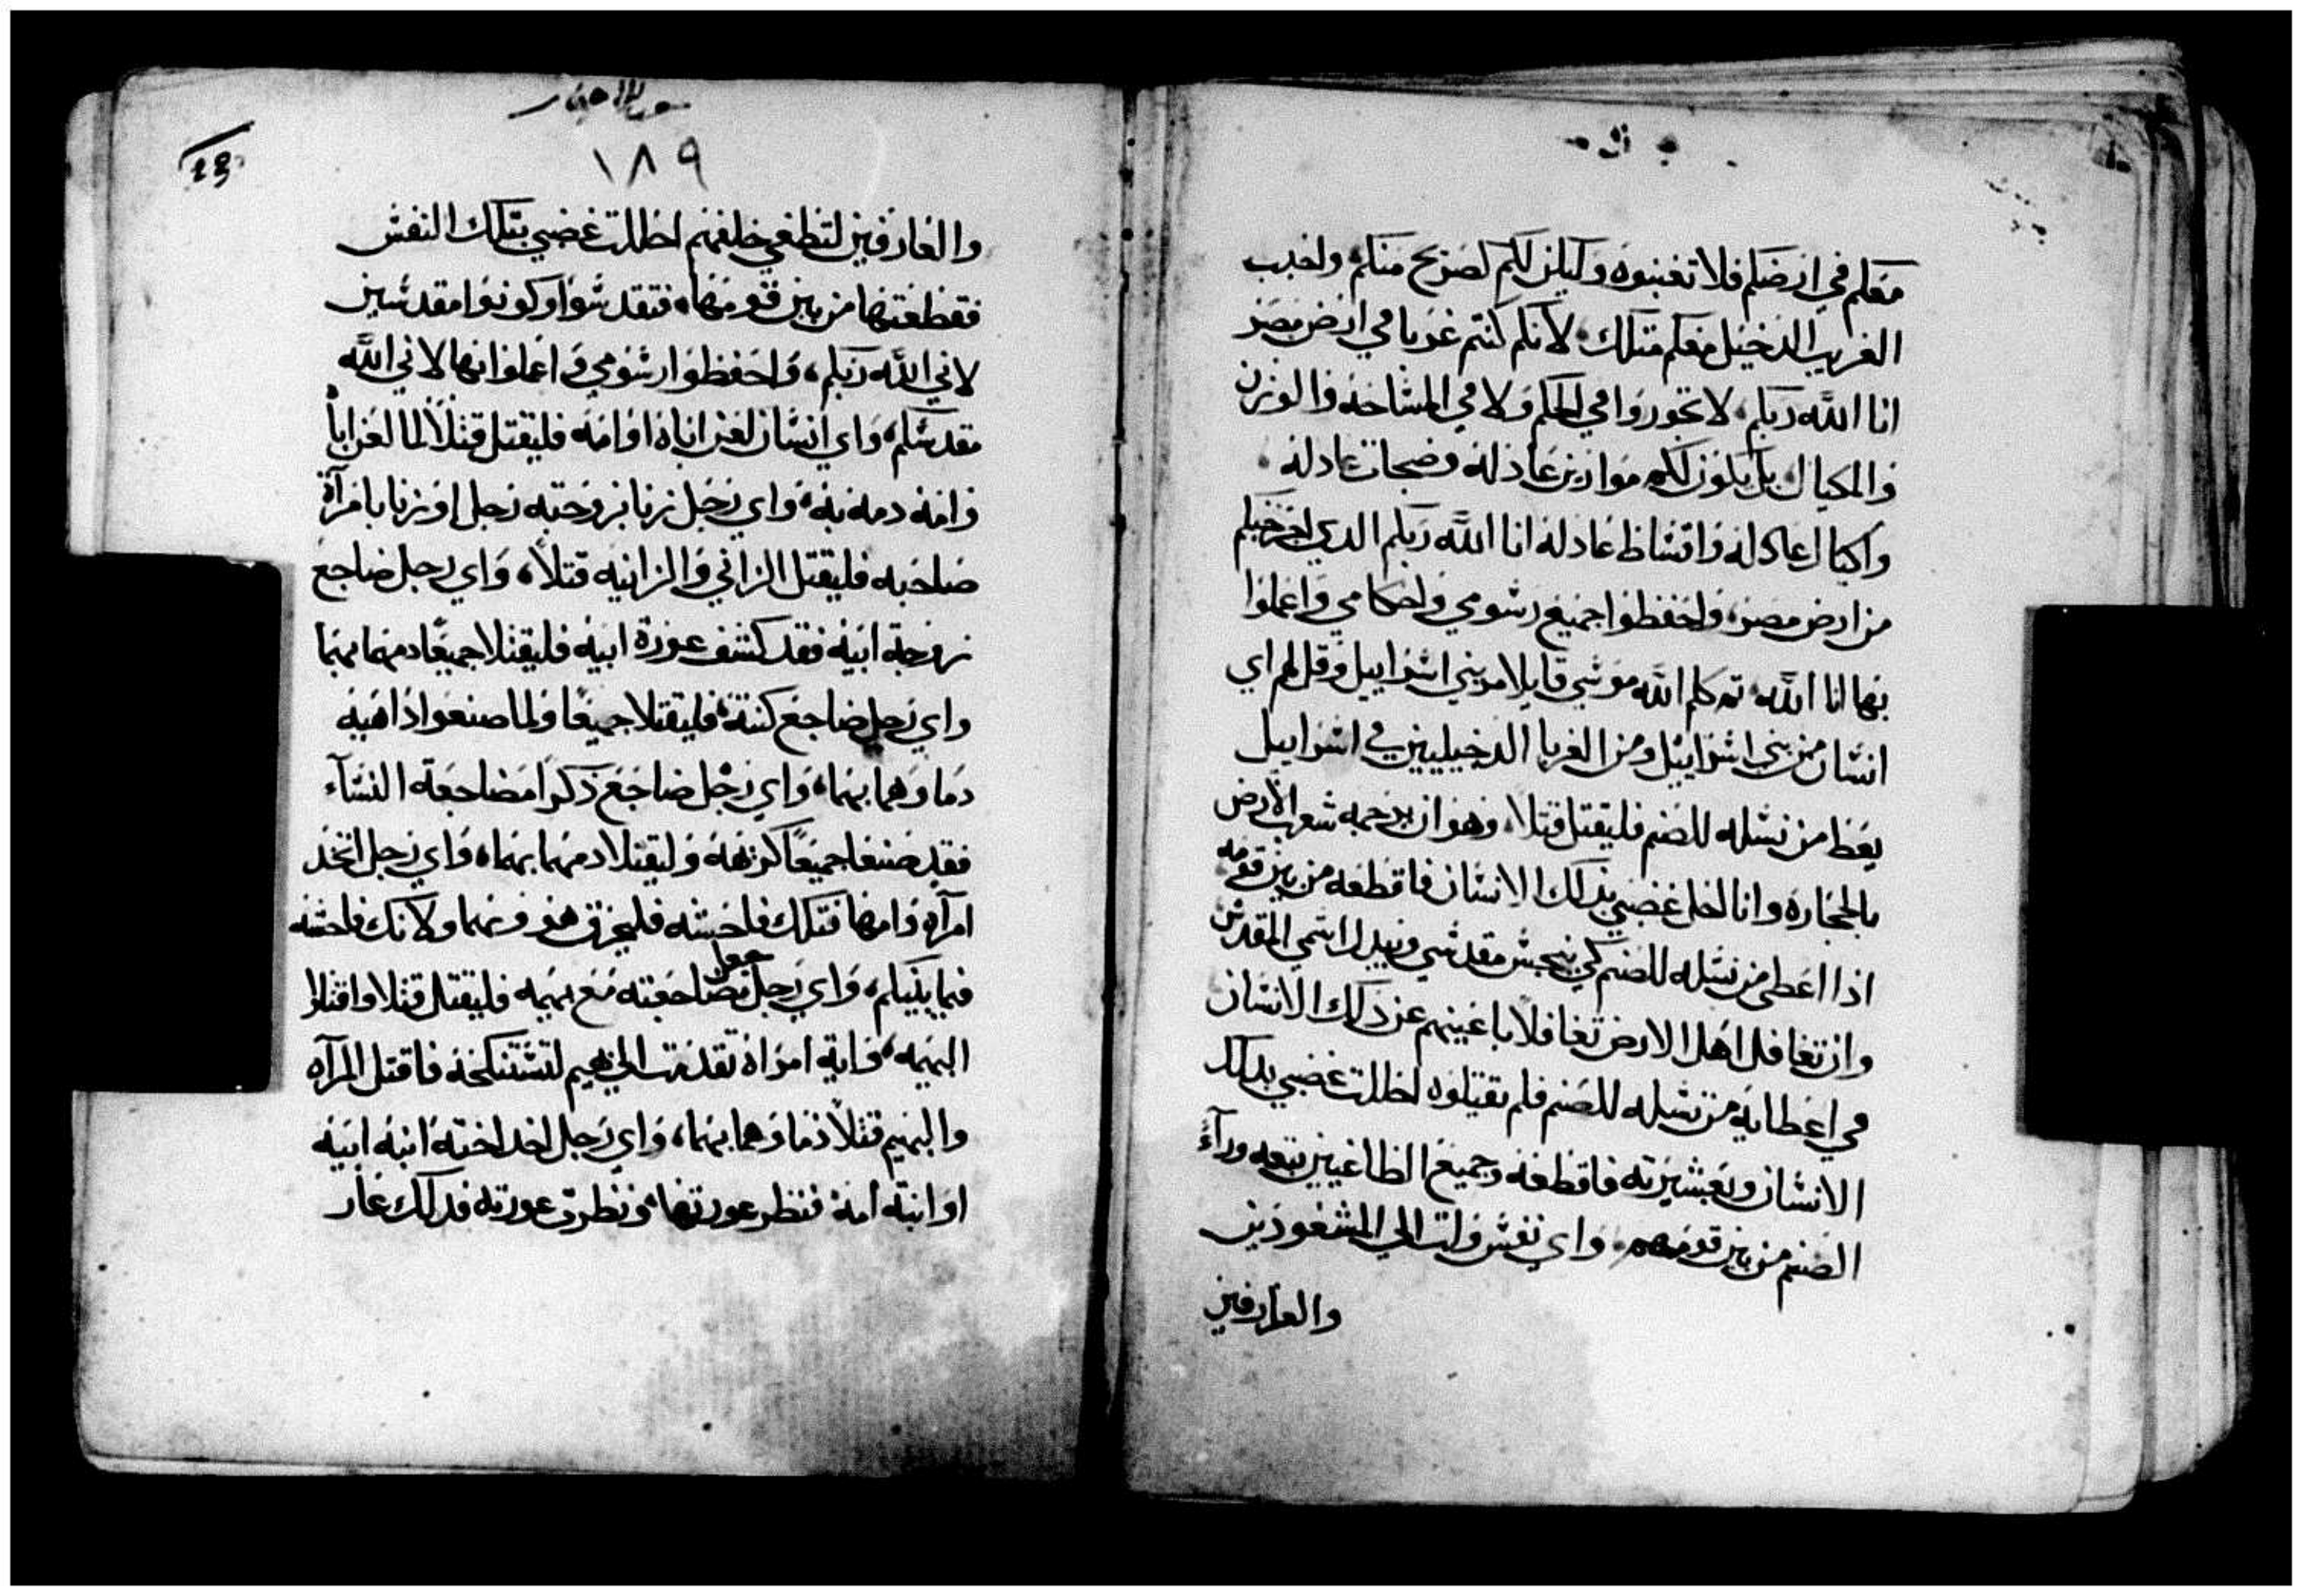 معكم في ارضكم فلا تغبنوه وليكن لكم كصريح منكم واحبب
الغريب الدخيل معكم مثلك لانكم كنتم غربا في ارض مصر
انا الله ربكم، لا تجوروا في الحكم ولا في المشاحه والوزن
والمكيال بل يكون لكم موازين عادله وصنجات عادله
واكيال عادله واقساط عادله انا الله ربكم الدي اخرجكم
من ارض مصر، واحفظوا جميع رسومي واحكامي واعملوا
بها انا الله ثم كلم الله موسي قايلا مر بني اسراييل وقل لهم اي
انسان من بني اسراييل ومن الغربا الدخيليين في اسراييل
يعط من نسله للصنم فليقتل قتلا، وهو ان يرجمه شعب الارض
بالحجاره وانا احل غضبي بدلك الانسان فاقطعه من بين قومه
اذا اعطي من نسله للصنم كي ينجس مقدسي ويبدل اسمي المقدس
وان تغافل اهل الارض تغافلا باعينهم عن دلك الانسان
في اعطايه من نسله للصنم فلم يقتلوه احللت غضبي بدلك
الانسان وبعشيرته فاقطعه وجميع الطاغيين تبعه ورآء
الصنم من بين قومهم. واي نفس ولت الي المشعودين
والعارفين
سفر الاحبار
١٨٩
والعارفين لتطغي خلفهم احللت غضبي بتلك النفس
فقطعتها من بين قومها، فتقدسوا وكونوا مقدسين
لاني الله ربكم، واحفظوا رسومي واعملوا بها لاني الله
مقدسكم، واي انسان لعن اباه او امه فليقتل قتلاً لما لعن اباً
وامه دمه به، واي رجل زنا بزوجته رجل او زنا بامرآة
صاحبه فليقتل الزاني والزانيه قتلاً، واي رجل ضاجع
زوجة ابيه فقد كشف عورة ابيه فليقتلا جميعًا دمهما بهما
واي رجل ضاجع كنته، فليقتلا جميعًا ولما صنعوا داهيه
دماوهما بهما، واي رجل ضاجع ذكرا مضاجعة النسآء
فقد صنعا جميعًا كريهه وليقتلا دمهما بهما، واي رجل اتخد
امرآه وامها فتلك فاحشه فليحرق هو وهما ولا تك فاحشه
فيما بينكم، واي رجل جعل مضاجعته مع بهيمه فليقتل قتلا واقتلوا
البهيمه، واية امراة تقدمت الي بهيم لتستنكحه فاقتل المرآه
والبهيم قتلاً دماوهما بهما، واي رجل اخد اخته ابنه ابيه
او ابنة امه فنظر عورتها ونظرت عورته فدلك عار